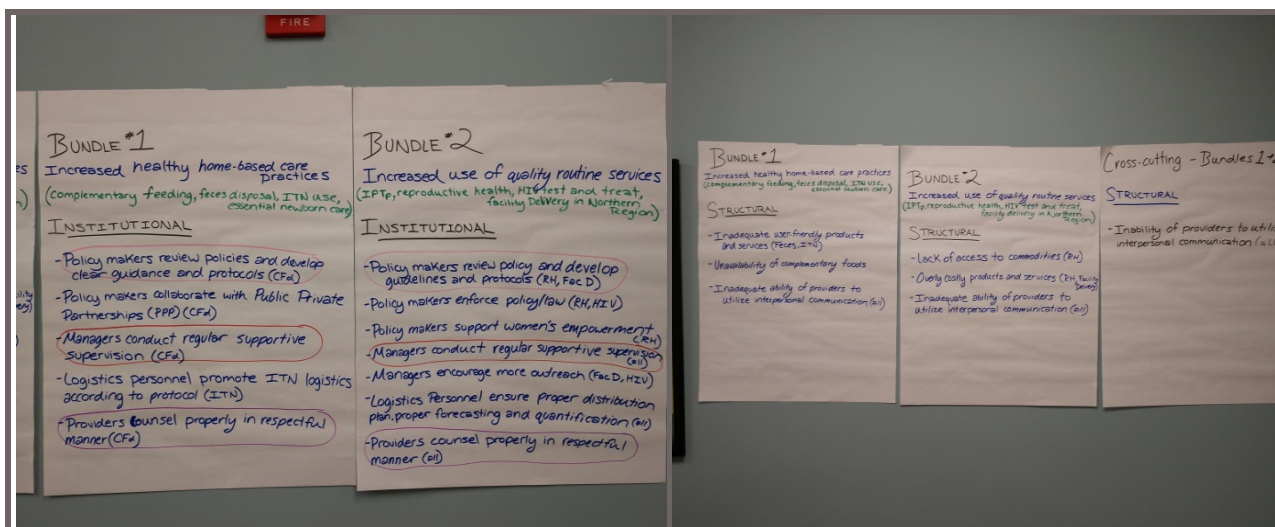 FIRE
BUNDLE #1
Increased healthy home-based care
practices
(complementary feeding, feces disposal, ITN use,
essential newborn care)
INSTITUTIONAL
-Policy makers review policies and develop
clear guidance and protocols (CFd)
-Policy makers collaborate with Public Private
Partnerships (PPP) (CFd)
-Managers conduct regular supportive
supervision (CFd)
-Logistics personnel promote ITN logistics
according to protocol (ITN)
-Providers counsel properly in respectful
manner (CFd)
BUNDLE #2
Increased use of quality routine services
(IPTp, reproductive health, HIV test and treat,
facility Delivery in Northern
Region)
INSTITUTIONAL
-Policy makers review policy and develop
guidelines and protocols (RH, Fac D)
-Policy makers enforce policy/law (RH, HIV)
-Policy makers support women's empowerment
(RH)
-Managers conduct regular supportive supervision
(all)
-Managers encourage more outreach (Fac D, HIV)
-Logistics Personnel ensure proper distribution
plan, proper forecasting and quantification (all)
-Providers counsel properly in respectful
manner (all)
BUNDLE #1
Increased healthy home-based care practices
(complementary feeding, feces disposal, ITN use,
essential newborn care)
STRUCTURAL
-Inadequate user-friendly products
and services (Feces, ITN)
-Unavailability of complementary foods
-Inadequate ability of providers to
utilize interpersonal communication (all)
BUNDLE #2
Increased use of quality routine services
(IPTp, reproductive health, HIV test and treat,
facility delivery in Northern
Region)
STRUCTURAL
-Lack of access to commodities (RH)
-Overly costly products and services (RH, Facility
Delivery)
-Inadequate ability of providers to
utilize interpersonal communication (all)
Cross-cutting - Bundles 1
STRUCTURAL
-Inability of providers to
interpersonal communication